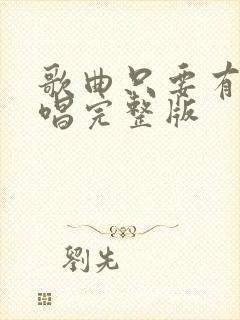 歌曲只要有
唱完整版
劉先